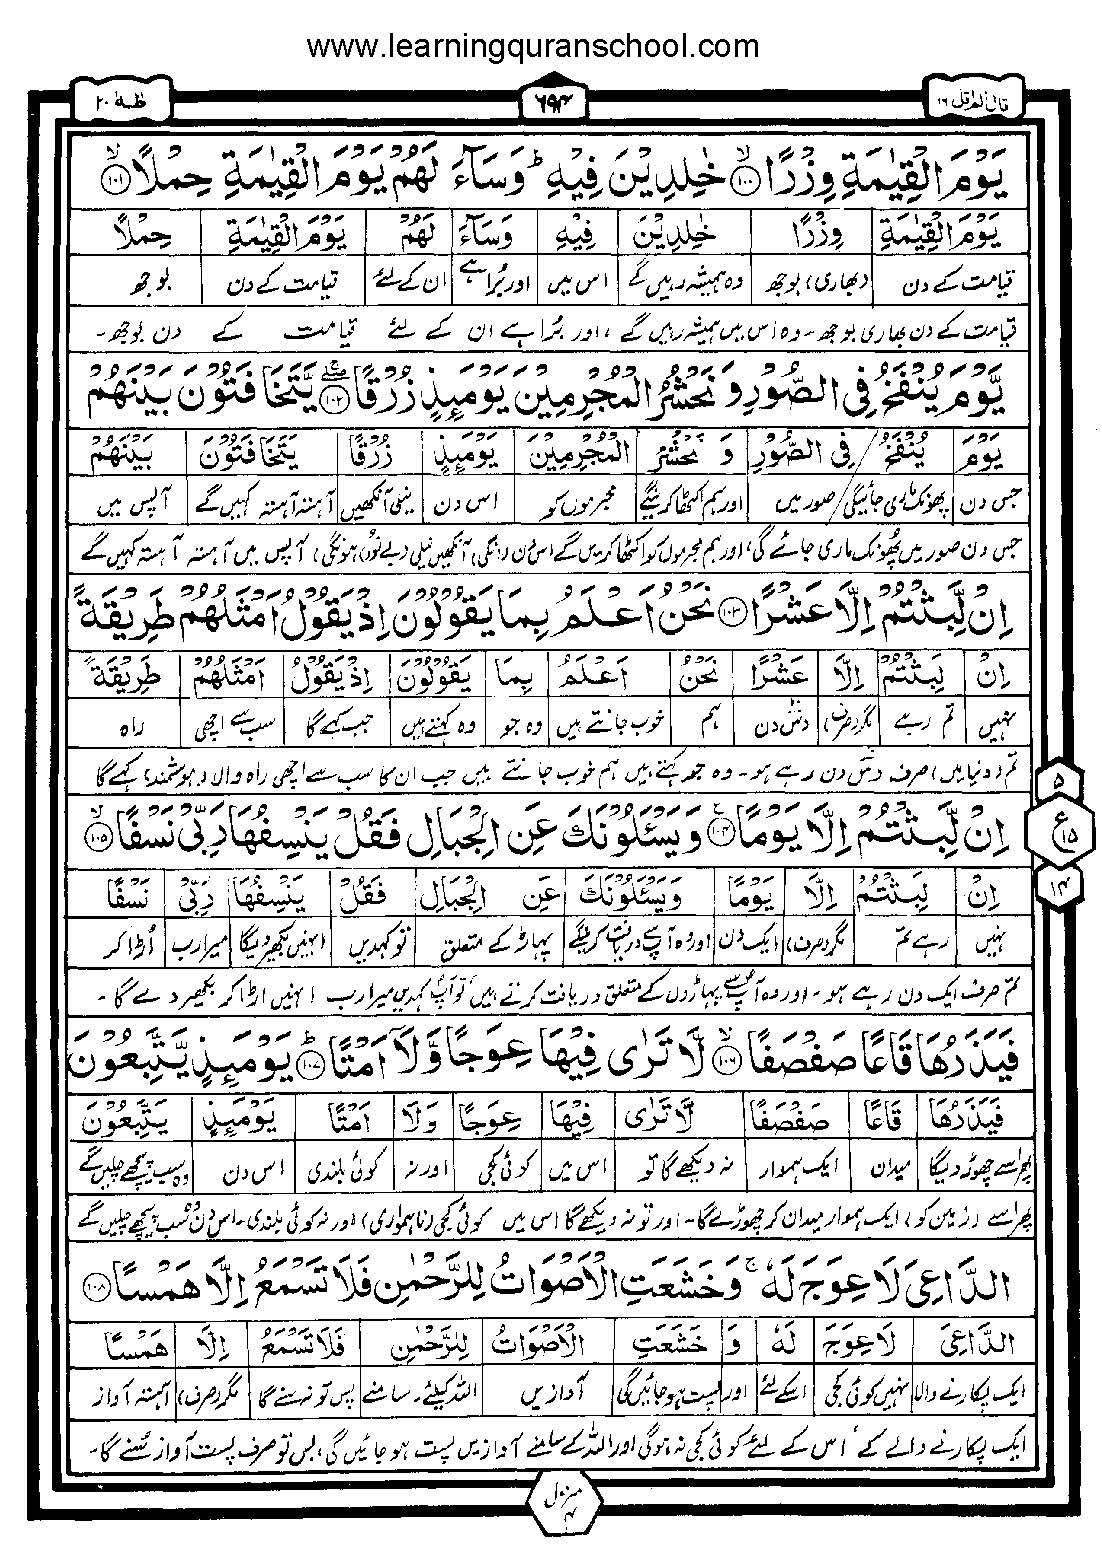 www.learningquranschool.com
قال الم اقل ۱۶
۶۹۴
طٰهٰ ۲۰
يَوْمَ الْقِيٰمَةِ وِزْرًا ۙ۱۰۰ خٰلِدِيْنَ فِيْهِ ؕ وَسَآءَ لَهُمْ يَوْمَ الْقِيٰمَةِ حِمْلًا ۙ۱۰۱
يَوْمَ الْقِيٰمَةِ وِزْرًا خٰلِدِيْنَ فِيْهِ وَسَآءَ لَهُمْ يَوْمَ الْقِيٰمَةِ حِمْلًا
قیامت کے دن (بھاری) بوجھ وہ ہمیشہ رہیں گے اس میں اور برا ہے ان کے لئے قیامت کے دن بوجھ
قیامت کے دن بھاری بوجھ۔ وہ اس میں ہمیشہ رہیں گے، اور بُرا ہے ان کے لئے قیامت کے دن بوجھ۔
يَّوْمَ يُنْفَخُ فِى الصُّوْرِ وَ نَحْشُرُ الْمُجْرِمِيْنَ يَوْمَىِٕذٍ زُرْقًا ۱۰۲ يَّتَخَافَتُوْنَ بَيْنَهُمْ
يَوْمَ يُنْفَخُ فِى الصُّوْرِ وَ نَحْشُرُ الْمُجْرِمِيْنَ يَوْمَىِٕذٍ زُرْقًا يَتَخَافَتُوْنَ بَيْنَهُمْ
جس دن پھونک ماری جائیگی صور میں اور ہم اکٹھا کرینگے مجرموں کو اس دن نیلی آنکھیں آہستہ آہستہ کہیں گے آپس میں
جس دن صور میں پھونک ماری جائے گی، اور ہم مجرموں کو اکٹھا کریں گے اس دن (انکی) آنکھیں نیلی (بے نور) ہونگی، آپس میں آہستہ آہستہ کہیں گے
اِنْ لَّبِثْتُمْ اِلَّا عَشْرًا ۱۰۳ نَحْنُ اَعْلَمُ بِمَا يَقُوْلُوْنَ اِذْ يَقُوْلُ اَمْثَلُهُمْ طَرِيْقَةً
اِنْ لَبِثْتُمْ اِلَّا عَشْرًا نَحْنُ اَعْلَمُ بِمَا يَقُوْلُوْنَ اِذْ يَقُوْلُ اَمْثَلُهُمْ طَرِيْقَةً
نہیں تم رہے مگر (صرف) دس دن ہم خوب جانتے ہیں وہ جو وہ کہتے ہیں جب کہے گا سب سے اچھی راہ
تم (دنیا میں) صرف دس دن رہے ہو۔ وہ جو کہتے ہیں ہم خوب جانتے ہیں جب ان کا سب سے اچھی راہ والا (ہوشمند) کہے گا
اِنْ لَّبِثْتُمْ اِلَّا يَوْمًا ۱۰۴ وَيَسْـَٔلُوْنَكَ عَنِ الْجِبَالِ فَقُلْ يَنْسِفُهَا رَبِّىْ نَسْفًا ۙ۱۰۵
۵
ع ۱۵
۱۴
اِنْ لَبِثْتُمْ اِلَّا يَوْمًا وَيَسْـَٔلُوْنَكَ عَنِ الْجِبَالِ فَقُلْ يَنْسِفُهَا رَبِّىْ نَسْفًا
نہیں رہے تم مگر (صرف) ایک دن اور وہ آپ سے دریافت کرینگے پہاڑ کے متعلق تو کہدیں انہیں بکھیر دیگا میرا رب اُڑا کر
تم صرف ایک دن رہے ہو۔ اور وہ آپ سے پہاڑوں کے متعلق دریافت کرتے ہیں، تو آپ کہدیں میرا رب انہیں اڑا کر بکھیر دے گا۔
فَيَذَرُهَا قَاعًا صَفْصَفًا ۙ۱۰۶ لَّا تَرٰى فِيْهَا عِوَجًا وَّلَاۤ اَمْتًا ؕ۱۰۷ يَوْمَىِٕذٍ يَّتَّبِعُوْنَ
فَيَذَرُهَا قَاعًا صَفْصَفًا لَّا تَرٰى فِيْهَا عِوَجًا وَلَا اَمْتًا يَوْمَىِٕذٍ يَتَّبِعُوْنَ
پھر اسے چھوڑ دیگا میدان ایک ہموار نہ دیکھے گا تو اس میں کوئی کجی اور نہ کوئی بلندی اس دن وہ سب پیچھے چلیں گے
پھر اسے (زمین کو) ایک ہموار میدان کر چھوڑے گا۔ اور تو نہ دیکھے گا اس میں کوئی کجی (نا ہمواری) اور نہ کوئی بلندی۔ اس دن وہ سب پیچھے چلیں گے
الدَّاعِىَ لَا عِوَجَ لَهٗ ۚ وَخَشَعَتِ الْاَصْوَاتُ لِلرَّحْمٰنِ فَلَا تَسْمَعُ اِلَّا هَمْسًا ۱۰۸
الدَّاعِىَ لَا عِوَجَ لَهٗ وَ خَشَعَتِ الْاَصْوَاتُ لِلرَّحْمٰنِ فَلَا تَسْمَعُ اِلَّا هَمْسًا
ایک پکارنے والا نہیں کوئی کجی اسکے لئے اور پست ہو جائیں گی آوازیں اللہ کیلئے۔ سامنے پس تو نہ سنے گا مگر (صرف) آہستہ آواز
ایک پکارنے والے کے، اس کے لئے کوئی کجی نہ ہوگی اور اللہ کے سامنے آوازیں پست ہو جائیں گی، بس تو صرف پست آواز سُنے گا۔
منزل ۴